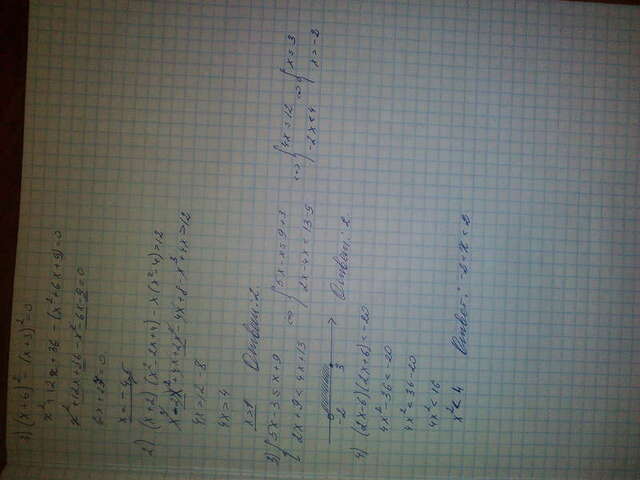 1) (x+6)² - (x+3)² = 0
x² + 12x + 36 - (x² + 6x + 9) = 0
x² + 12x + 36 - x² - 6x - 9 = 0
6x + 27 = 0
x = -4,5
2) (x+2)(x² - 2x + 4) - x(x² - 4) = 12
x³ - 2x² + 4x + 2x² - 4x + 8 - x³ + 4x = 12
4x = 12 - 8
4x = 4
x = 1 Ответ: 2.
3) { 5x - 3 ≤ x + 9
2x + 9 < 4x + 13
⇔ { 5x - x ≤ 9 + 3
2x - 4x < 13 - 9
⇔ { 4x = 12
-2x < 4
⇔ { x = 3
x = -2
-2 3 Ответ: 2.
4) (2x - 6)(2x + 6) < -20
4x² - 36 < -20
4x² < 36 - 20
4x² < 16
x² < 4 Ответ: -2 < x < 2